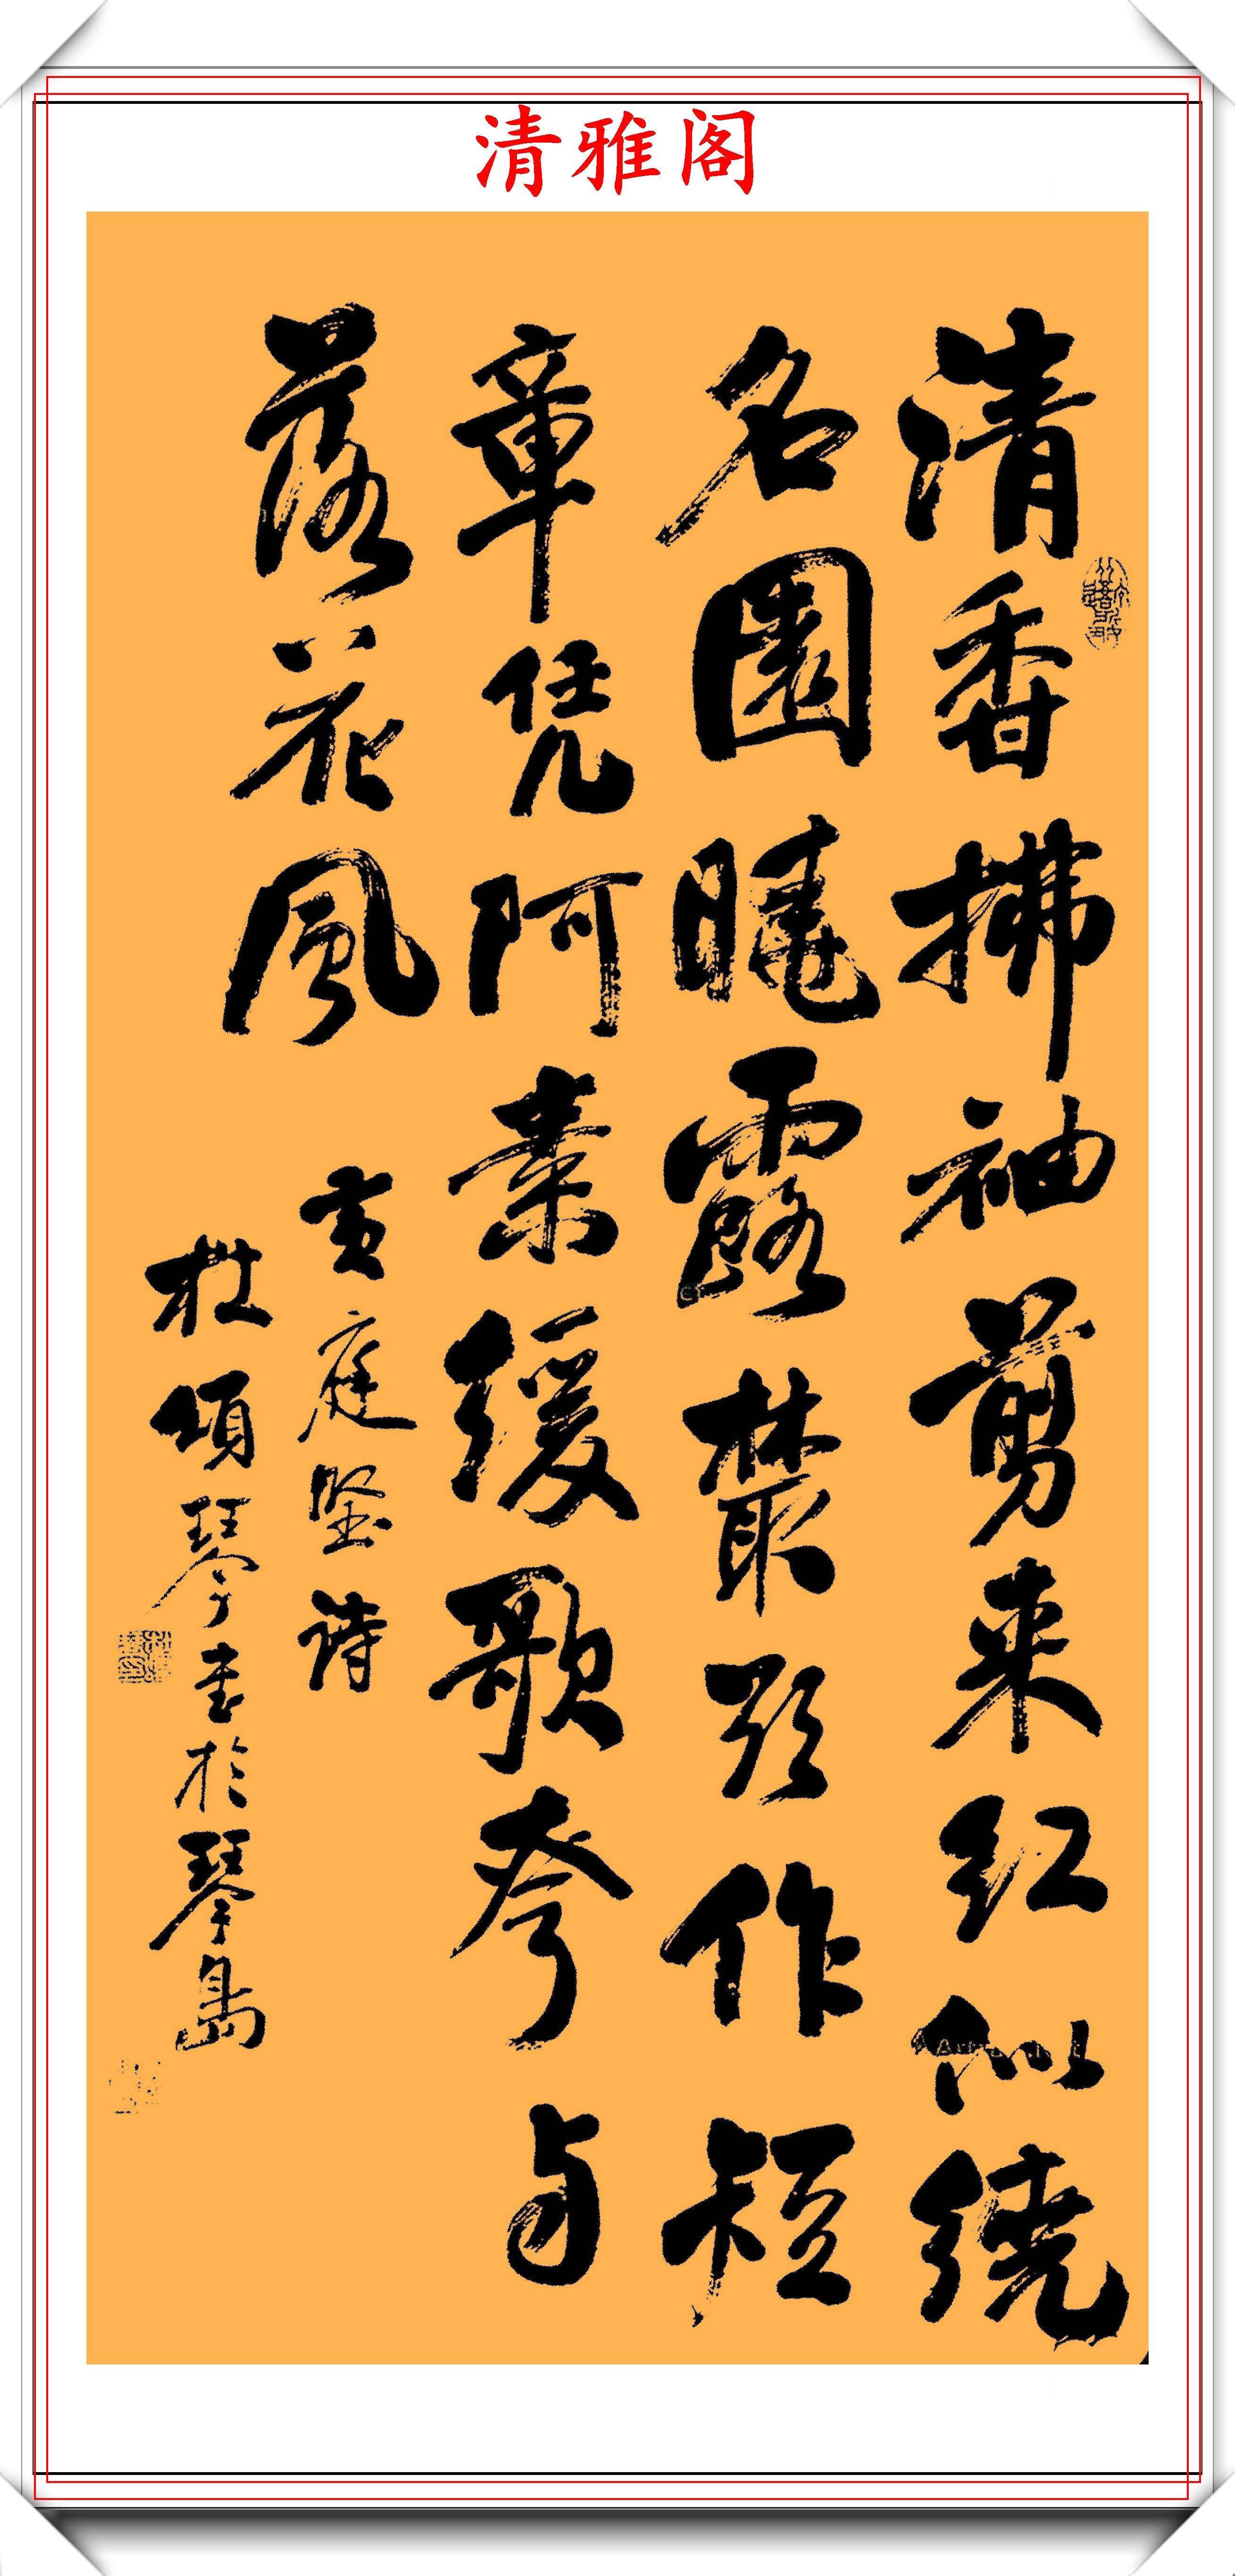 清雅阁
清香拂袖剪来红似绕
名園曉露叢欲作短
章凭阿素缓歌夸与
落花風
黄庭堅诗
杜頌琴書於琴島